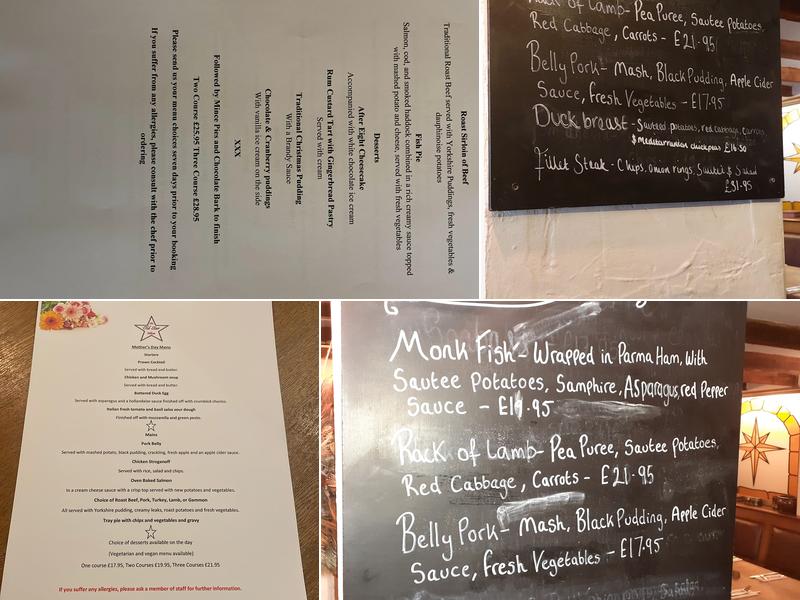 Roast Sirloin of Beef
Traditional Roast Beef served with Yorkshire Puddings, fresh vegetables &
dauphinoise potatoes
Fish Pie
Salmon, cod, and smoked haddock combined in a rich creamy sauce topped
with mashed potato and cheese, served with fresh vegetables
Desserts
After Eight Cheesecake
Accompanied with white chocolate ice cream
Rum Custard Tart with Gingerbread Pastry
Served with cream
Traditional Christmas Pudding
With a Brandy Sauce
Chocolate & Cranberry puddings
With vanilla ice cream on the side
XXX
Followed by Mince Pies and Chocolate Bark to finish
Two Course £25.95 Three Course £28.95
Please send us your menu choices seven days prior to your booking
If you suffer from any allergies, please consult with the chef prior to
ordering
Rack of Lamb - Pea Puree, Sautee Potatoes,
Red Cabbage, Carrots - £21.95
Belly Pork - Mash, Black Pudding, Apple Cider
Sauce, Fresh Vegetables - £17.95
Duck breast - Sauteed potatoes, red cabbage, carrots,
& Mediterranean chickpeas £16.50
Fillet Steak - Chips, onion rings, & Salad
£31.95
Mother's Day Menu
Starters
Prawn Cocktail
Served with bread and butter.
Chicken and Mushroom soup
Served with bread and butter.
Battered Duck Egg
Served with asparagus and a hollandaise sauce finished off with crumbled chorizo.
Italian fresh tomato and basil salsa sour dough
Finished off with mozzarella and green pesto.
Mains
Pork Belly
Served with mashed potato, black pudding, crackling, fresh apple and an apple cider sauce.
Chicken Stroganoff
Served with rice, salad and chips.
Oven Baked Salmon
In a cream cheese sauce with a crisp top served with new potatoes and vegetables.
Choice of Roast Beef, Pork, Turkey, Lamb, or Gammon
All served with Yorkshire pudding, creamy leaks, roast potatoes and fresh vegetables.
Tray pie with chips and vegetables and gravy
Choice of desserts available on the day
(Vegetarian and vegan menu available)
One course £17.95, Two Courses £19.95, Three Courses £21.95
If you suffer any allergies, please ask a member of staff for further information.
Monk Fish - Wrapped in Parma Ham, With
Sautee Potatoes, Samphire, Asparagus, red Pepper
Sauce - £19.95
Rack of Lamb - Pea Puree, Sautee Potatoes,
Red Cabbage, Carrots - £21.95
Belly Pork - Mash, Black Pudding, Apple Cider
Sauce, Fresh Vegetables - £17.95